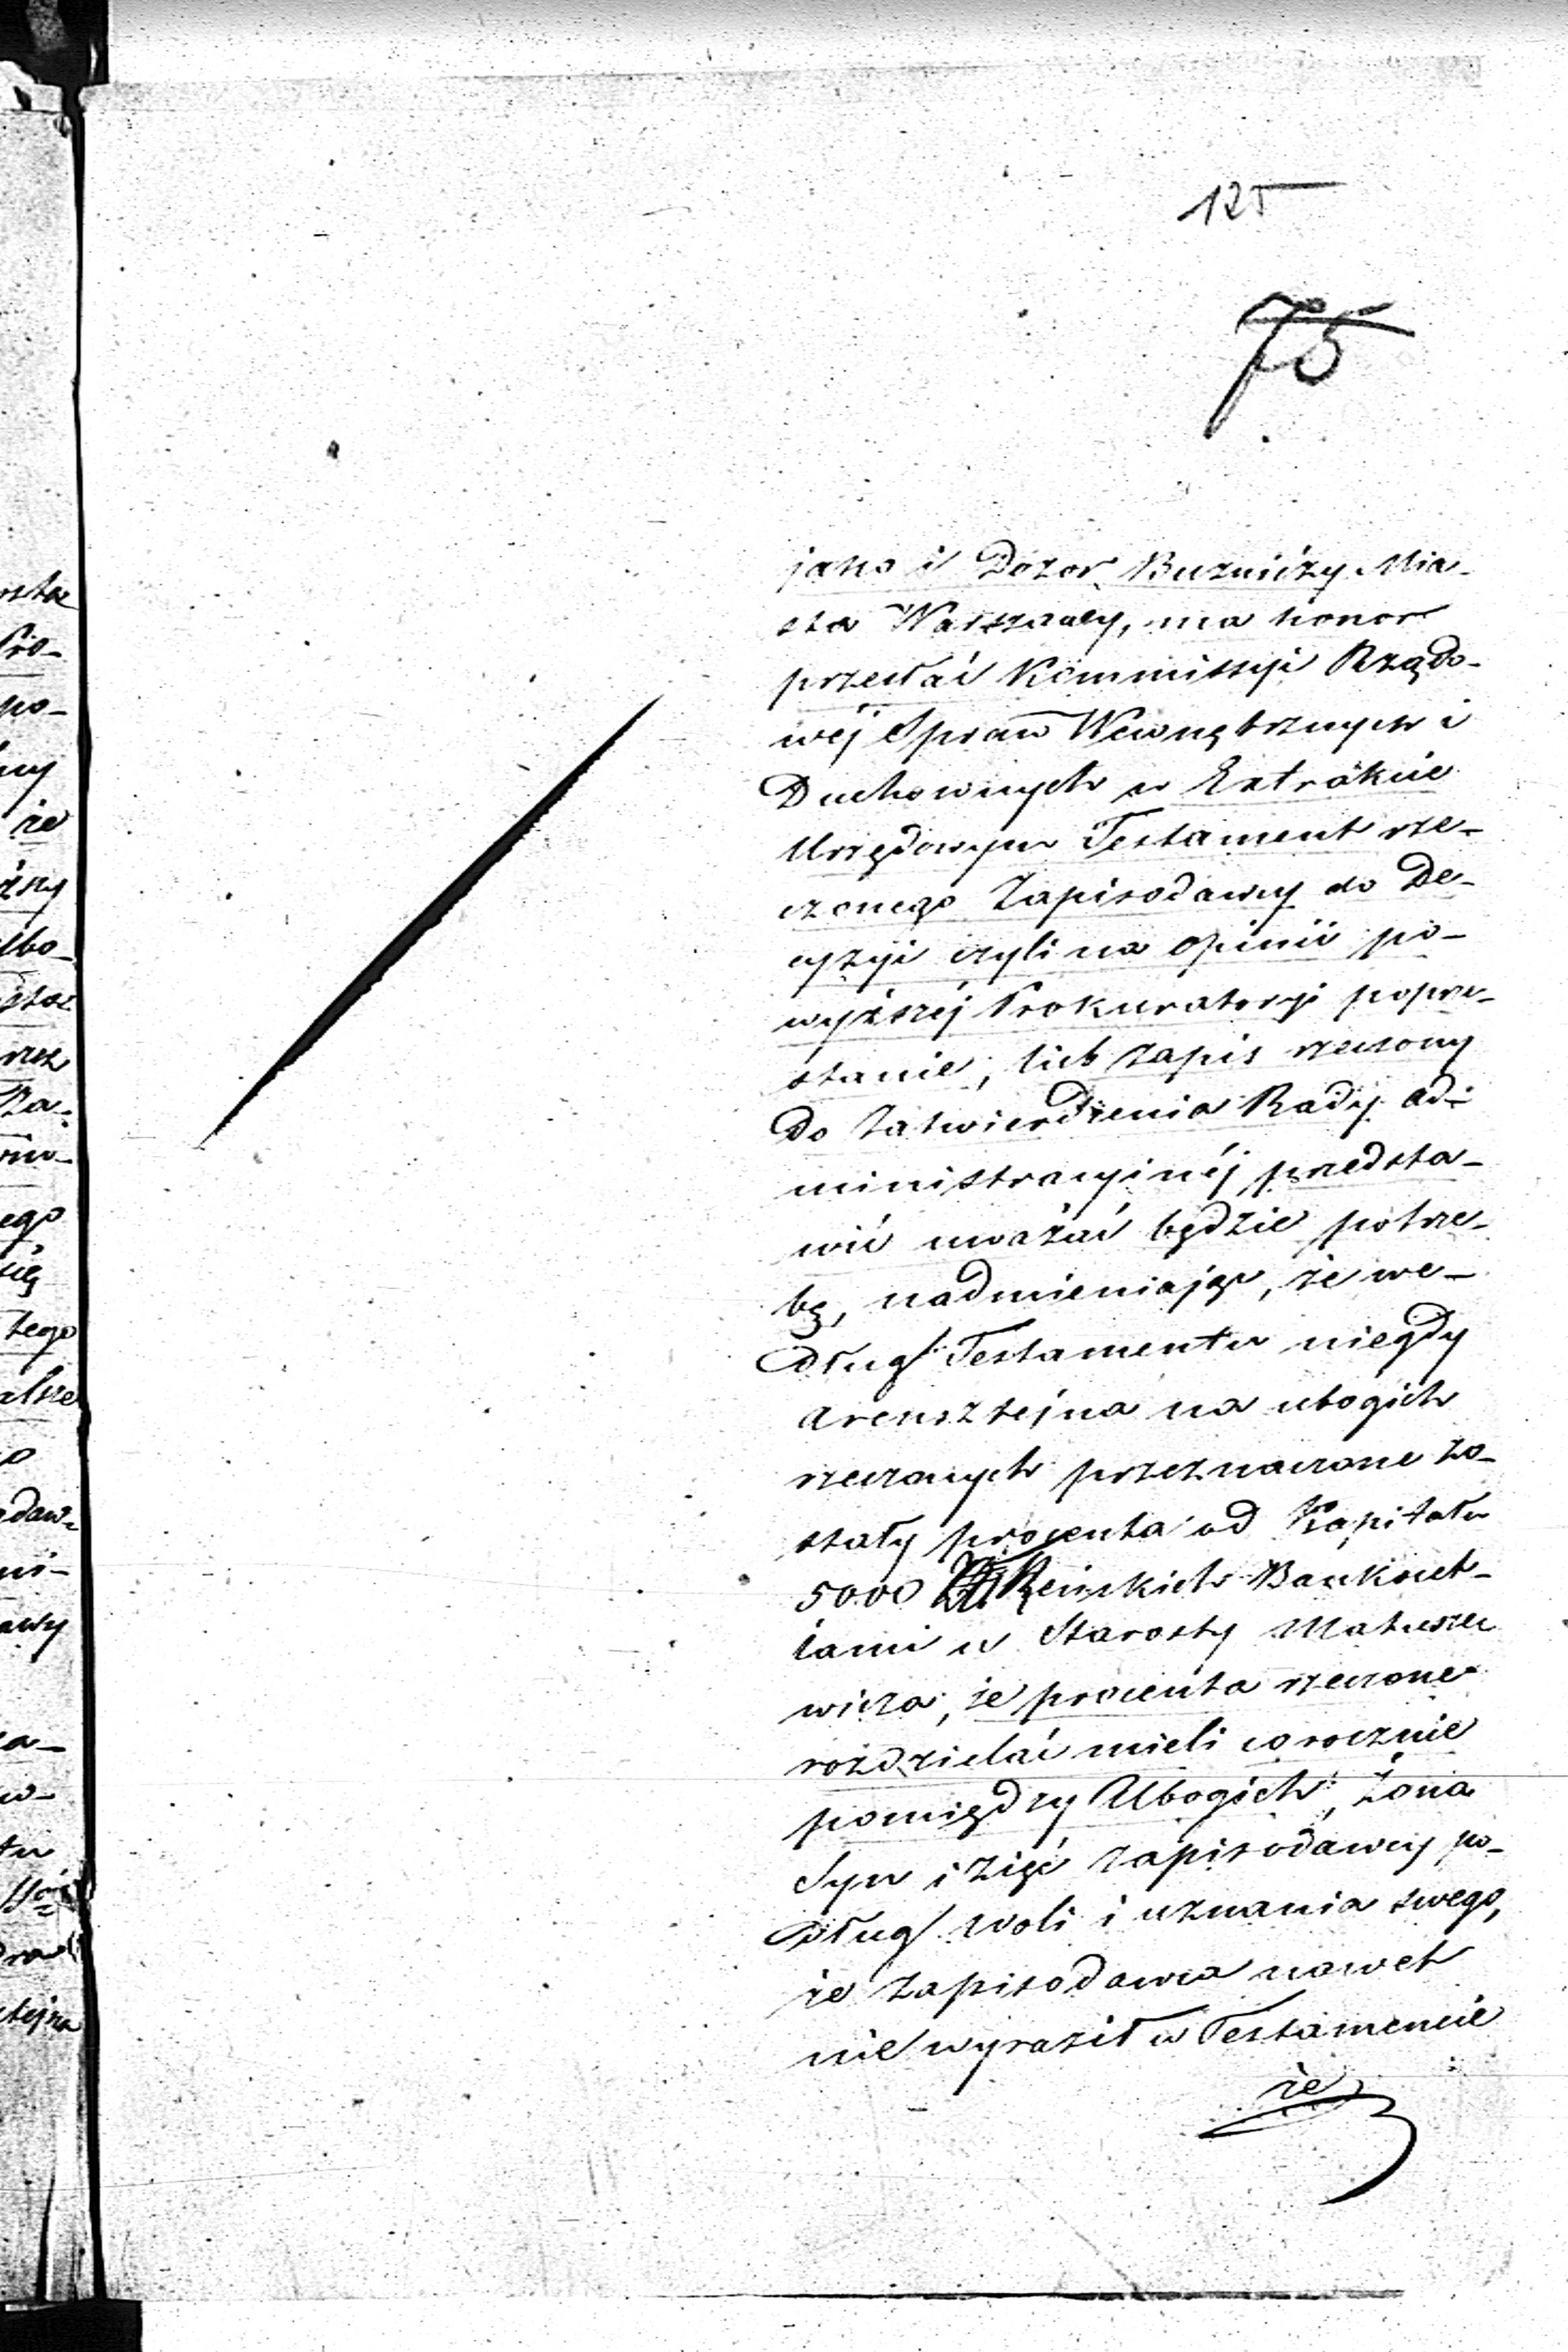 125
75
jako i Dozor Bużniczy Mia-
sta Warszawy, ma honor
przesłać Kommissyi Rządo-
wéj Spraw Wewnętrznych i
Duchownych w Extrakcie
Urzędowym Testament rze-
czonego Zapisodawcy do De-
cyzyi czyli na opinii po-
wyższéj Prokuratoryi poprze-
stanie, lub zapis rzeczony
do Zatwierdzenia Rady ad-
ministracyinéj przedsta-
wić uważać będzie potrze-
bę, nadmieniając, że we-
dług Testamentu niegdy
Arensztejna na ubogich
rzeczonych przeznaczone zo-
stały procenta od Kapitału
5000 Reińskich Banknot-
tami u Starosty Matusze
wicza, że procenta rzeczone
rozdzielać mieli corocznie
pomiędzy Ubogich, Żona
Syn i Zięć zapisodawcy po-
dług woli i uznania swego,
że Zapisodawca nawet
nie wyraził w Testamencie
że
ego
się
tego
po-
że